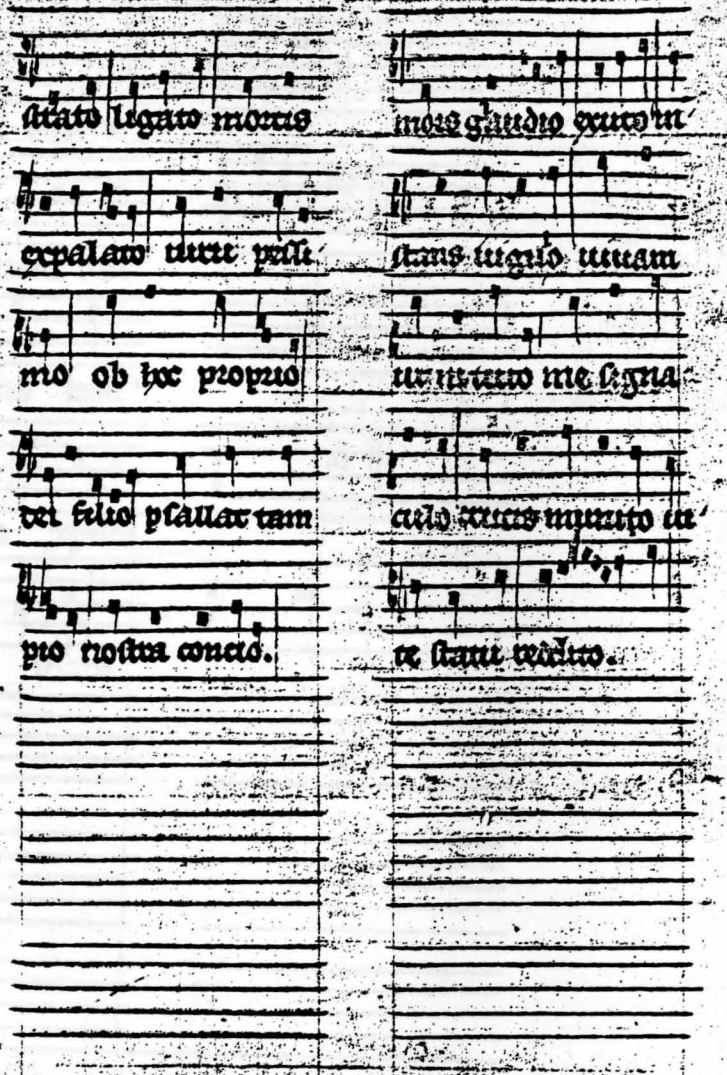 strato ligato mortis
expalato uiru pessi
mo ob hoc proprio
dei filio psallat tam
pio nostra concio.
mois gaudio exuto in
stans uigilo uiuam
ut me signa
culo crucis munito ui
te statu reddito.